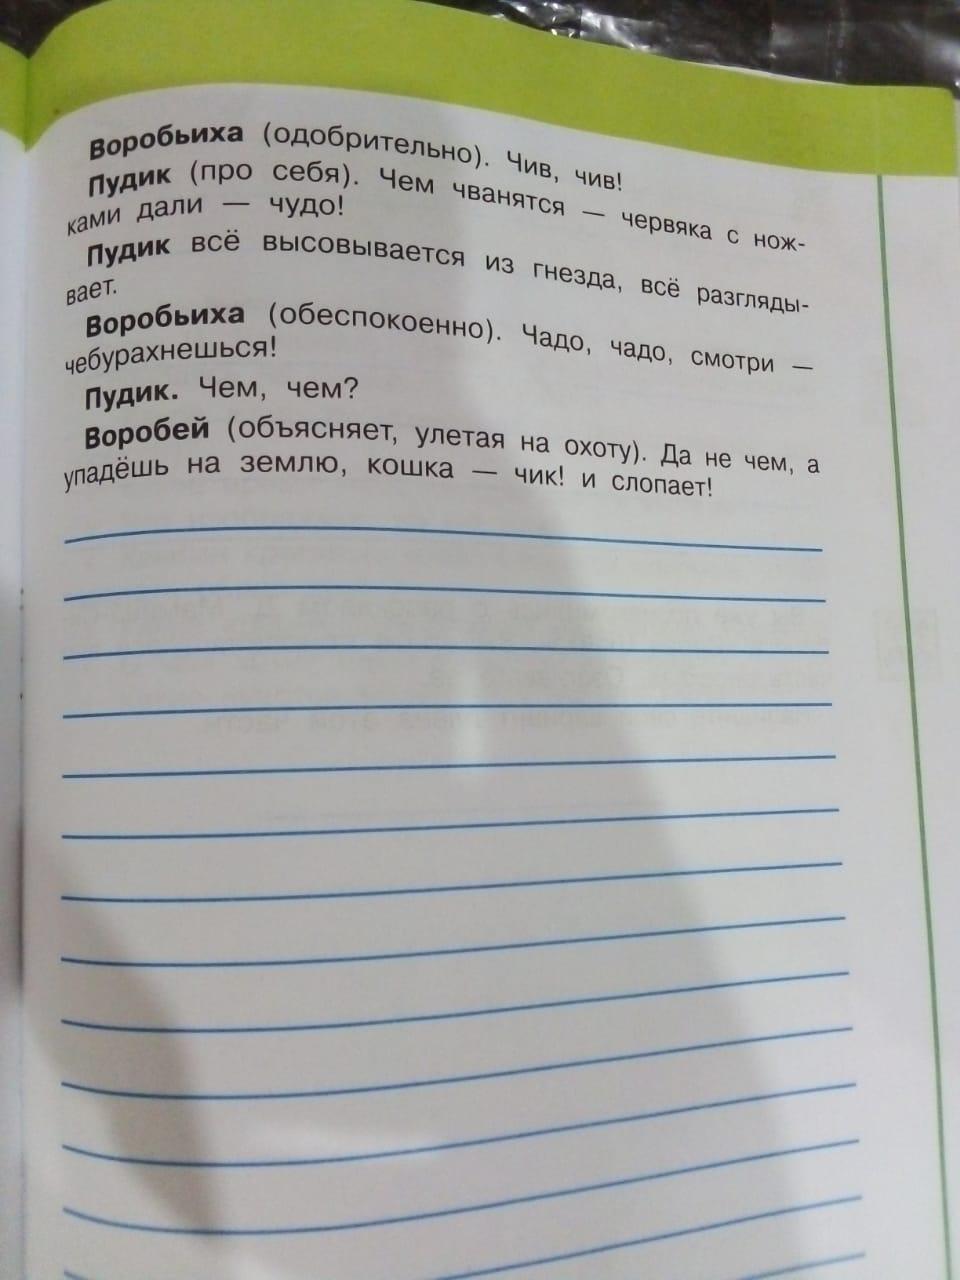 Воробьиха (одобрительно). Чив, чив!
Пудик (про себя). Чем чванятся — червяка с нож-
ками дали — чудо!
Пудик всё высовывается из гнезда, всё разгляды-
вает.
Воробьиха (обеспокоенно). Чадо, чадо, смотри —
чебурахнешься!
Пудик. Чем, чем?
Воробей (объясняет, улетая на охоту). Да не чем, а
упадёшь на землю, кошка — чик! и слопает!